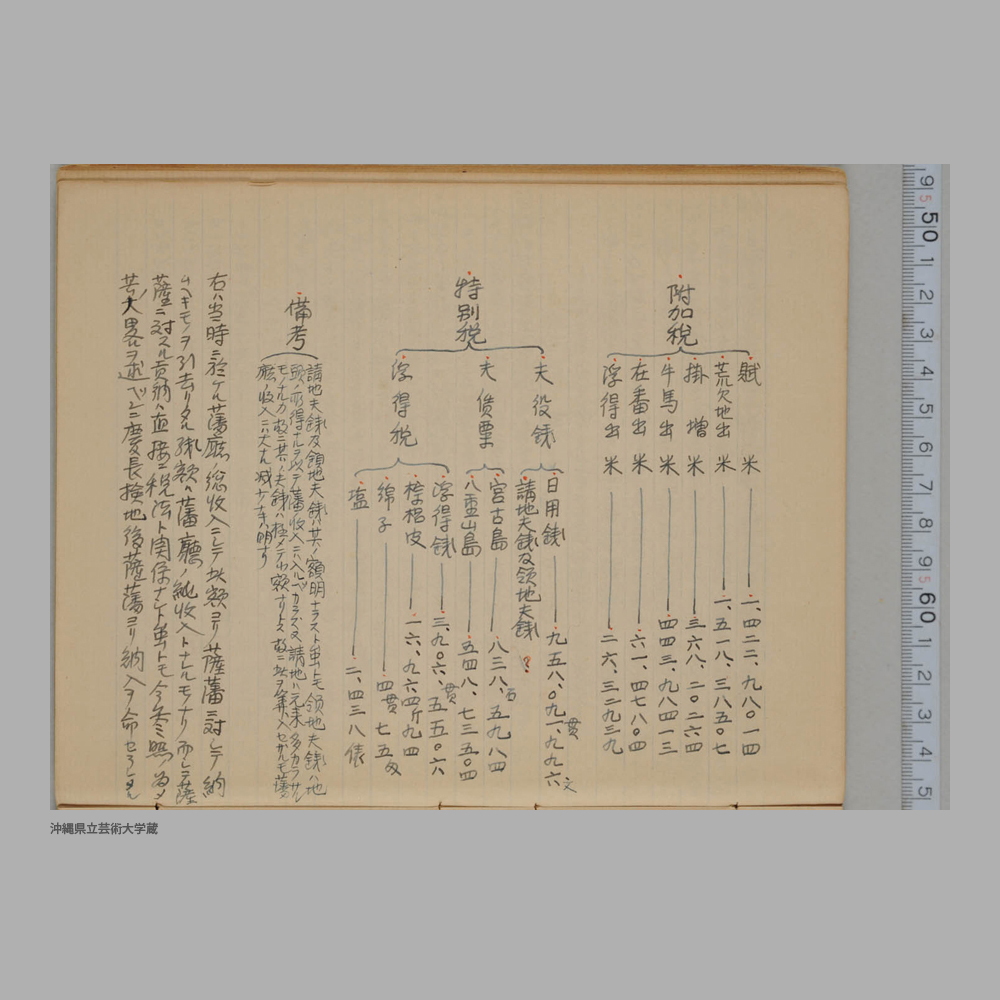 附加税
賦米 一、四二二、九八〇一四
荒欠地出米 一、五一八、三八五〇七
掛増米 三六八、二〇二六四
牛馬出米 四四三、九八四一三
在番出米 六一、四七八〇四
浮得出米 二六、三二九三九
特別税
夫役銭
日用銭 九五八、〇九一、九九六
貫
文
請地夫銭及領地夫銭 ?
夫賃粟
宮古島 八三八、五九八四
石
八重山島 五四八、七三五〇四
浮得税
浮得銭 三、九〇六、五五〇六
貫
棕梠皮 一六、九六四斤九四
綿子 四貫七五匁
塩 二、四三八俵
備考
請地夫銭及領地夫銭ハ其ノ額明ナラスト虽トモ領地夫銭ハ地
頭ノ所得ナルヲ以テ藩ノ収入ニハ入ルベカラズ又請地ハ元来多カラザル
モノナルカ故ニ其ノ夫銭ハ極メテ小額ナリトス故ニ此ヲ算入セザルモ藩
廰ノ収入ニハ大ナル減少ナキハ明ナリ
右ハ当時ニ於ケル藩廰ノ総収入ニシテ此額ヨリ薩藩ニ対シテ納
ムヘキモノヲ引去リタル残額ハ藩廳ノ純収入トナルモノナリ而シテ薩
薩ニ対スル貢納ハ直接ニ税法ト関係ナシト虽トモ今参照ノ為メ
其ノ大畧ヲ述ベンニ慶長検地後薩藩ヨリ納入ヲ命セラレタル
50 1 2 3 4 5 6 7 8 9 60 1 2 3 4 5
沖縄県立芸術大学蔵